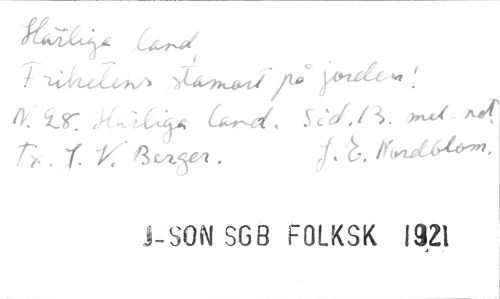 Härliga land,
Frihetens stamort på jorden!
N. 28. Härliga land. Sid. 13. mel. not.
Tx. J. V. Berger. J. E. Nordblom.
J-SON SGB FOLKSK 1921